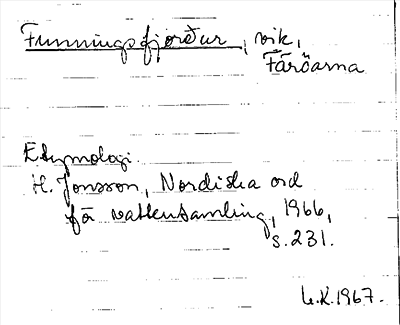 Funningsfjørður, vik,
Färöarna
Etymologi.
H. Jonsson, Nordiska ord
för vattensamling, 1966,
s. 231.
L.K. 1967.